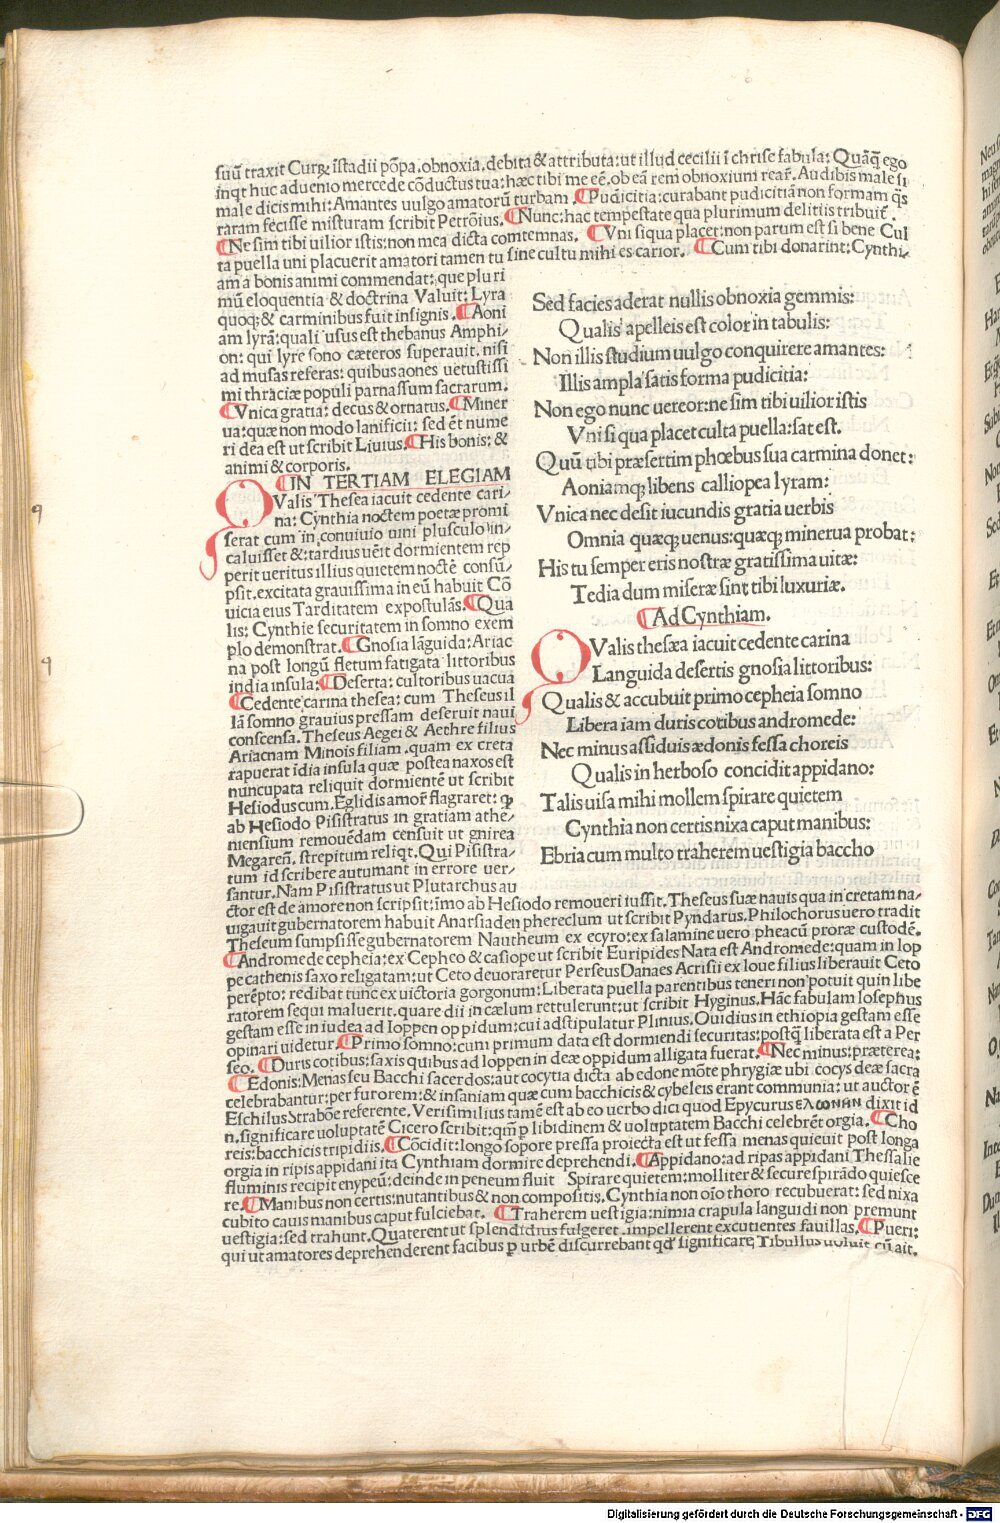 suū traxit Curꝫ īstadii pōpa.obnoxia.debita & attributa:ut illud cecilii ī chrise fabula: Quāꝗ̄ ego
inqt huc aduenio mercede cōductus tua: hæc tibi me eē. ob eā rem obnoxium rear̄. Audibis male si
male dicis mihi: Amantes uulgo amatorū turbam. ¶Pudicitia: curabant pudicitiā non formam q̄s
raram fecisse misturam scribit Petrōius. ¶Nunc: hac tempestate qua plurimum delitiis tribuit̄.
¶Ne sim tibi uilior istis: non mea dicta comtemnas. ¶Vni siqua placet: non parum est si bene Cul
ta puella uni placuerit amatori tamen tu sine cultu mihi es carior. ¶Cum tibi donarint: Cynthi-
am a bonis animi commendat: que pluri
mū eloquentia & doctrina Valuit: Lyra
quoq; & carminibus fuit insignis. ¶Aoni
am lyrā: quali usus est thebanus Amphi-
on: qui lyre sono cæteros superauit. nisi
ad musas referas: quibus aones uetustissi
mi thraciæ populi parnassum sacrarum.
¶Vnica gratia: decus & ornatus. ¶Miner
ua: quæ non modo lanificii: sed ēt nume
ri dea est ut scribit Liuius. ¶His bonis: &
animi & corporis.
¶IN TERTIAM ELEGIAM
QValis Thesea iacuit cedente cari-
na: Cynthia noctem poetæ promi
serat cum in conuiuio uini plusculo in-
caluisset &: tardius uēit dormientem rep
perit ueritus illius quietem noctē consū-
psit. excitata grauissima in eū habuit Cō
uicia eius Tarditatem expostulās. ¶Qua
lis: Cynthie securitatem in somno exem
plo demonstrat. ¶Gnosia lāguida: Ariac
na post longū fletum fatigata littoribus
ind ia insula: ¶Deserta: cultoribus uacua
¶Cedente carina thesea: cum Theseus il
lā somno grauius pressam deseruit naui
conscensa. Theseus Aegei & Aethre filius
Ariacnam Minois filiam. quam ex creta
rapuerat īdia insula quæ postea naxos est
nuncupata reliquit dormientē ut scribit
Hesiodus cum. Eglidis amor̄ flagraret: ꝙ
ab Hesiodo Pisistratus in gratiam athe-
niensium remouēdam censuit ut gnirea
Megareñ. strepitum reliqt. Qui Pisistra-
tum id scribere autumant in errore uer-
santur. Nam Pisistratus ut Plutarchus au
ctor est de amore non scripsit: īmo ab Hesiodo remoueri iussit. Theseus suæ nauis qua in cretam na-
uigauit gubernatorem habuit Anarsiaden phereclum ut scribit Pyndarus. Philochorus uero tradit
Theseum sumpsisse gubernatorem Nautheum ex ecyro: ex salamine uero pheacū proræ custodē.
¶Andromede cepheia: ex Cepheo & casiope ut scribit Euripides Nata est Andromede: quam in Iop
pe cathenis saxo religatam: ut Ceto deuoraretur Perseus Danaes Acrisii ex Ioue filius liberauit Ceto
perēpto: redibat tunc ex uictoria gorgonum: Liberata puella parentibus teneri non potuit quin libe
ratorem sequi maluerit. quare dii in cælum rettulerunt: ut scribit Hyginus. Hāc fabulam Iosephus
gestam esse in iudea ad Ioppen oppidum: cui adstipulatur Plinius. Ouidius in ethiopia gestam esse
opinari uidetur. ¶Primo somno: cum primum data est dormiendi securitas: postꝗ̄ liberata est a Per
seo. ¶Duris cotibus: saxis quibus ad Ioppen in deæ oppidum alligata fuerat. ¶Nec minus: præterea:
¶Edonis: Menas seu Bacchi sacerdos: aut cocytia dicta ab edone mōte phrygiæ ubi cocys deæ sacra
celebrabantur: per furorem: & insaniam quæ cum bacchicis & cybeleis erant communia: ut auctor ē
Eschilus Strabōe referente. Verisimilius tamē est ab eo uerbo dici quod Epycurus ελωνην dixit id
n. significare uoluptatē Cicero scribit: qm̄ p libidinem & uoluptatem Bacchi celebrēt orgia. ¶Cho
reis: bacchicis tripidiis. ¶Cōcidit: longo sopore pressa proiecta est ut fessa menas quieuit post longa
orgia in ripis appidani ita Cynthiam dormire deprehendi. ¶Appidano: ad ripas appidani Thessalie
fluminis recipit enypeū: deinde in peneum fluit Spirare quietem: molliter & secure spirādo quiesce
re. ¶Manibus non certis: nutantibus & non compositis. Cynthia non oīo thoro recubuerat: sed nixa
cubito cauis manibus caput fulciebat. ¶Traherem uestigia: nimia crapula languidi non premunt
uestigia: sed trahunt. Quaterent ut splendidius fulgeret. impellerent excutientes fauillas. ¶Pueri:
qui ut amatores deprehenderent facibus p urbē discurrebant qd̄ significare Tibullus uoluit cū ait.
Sed facies aderat nullis obnoxia gemmis:
Qualis apelleis est color in tabulis:
Non illis studium uulgo conquirere amantes:
Illis ampla satis forma pudicitia:
Non ego nunc uereor: ne sim tibi uilior istis
Vni si qua placet culta puella: sat est.
Quū tibi præsertim phœbus sua carmina donet:
Aoniamq; libens calliopea lyram:
Vnica nec desit iucundis gratia uerbis
Omnia quæq; uenus: quæq; minerua probat:
His tu semper eris nostræ gratissima uitæ:
Tedia dum miseræ sint tibi luxuriæ.
¶Ad Cynthiam.
QValis thesæa iacuit cedente carina
Languida desertis gnosia littoribus:
Qualis & accubuit primo cepheia somno
Libera iam duris cotibus andromede:
Nec minus assiduis ædonis fessa choreis
Qualis in herboso concidit appidano:
Talis uisa mihi mollem spirare quietem
Cynthia non certis nixa caput manibus:
Ebria cum multo traherem uestigia baccho
Digitalisierung gefördert durch die Deutsche Forschungsgemeinschaft - DFG